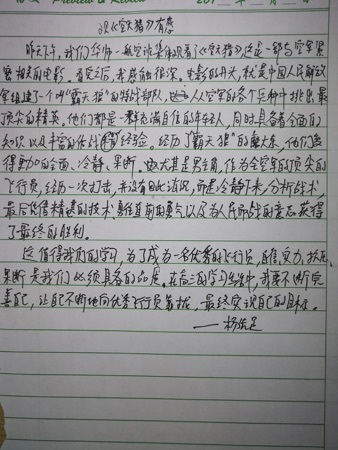 观《空天猎》有感
昨天下午，我们华师一航空班集体观看了《空天猎》这是一部与空军紧
密相关的电影。看完之后，我感触很深。电影的开头，就是中国人民解放
军组建了一个叫"霸天狼"的特战部队，从空军的各个兵种中挑出最
顶尖的精英。他们都是一群充满自信的年轻人，同时具备着全面的
知识以及丰富的作战经验。经历了"霸天狼"的磨炼，他们变
得更加的全面、冷静、果断。尤其是男主角，作为全空军的顶尖的
飞行员，经历一次打击，并没有因此消沉，而是冷静下来，分析战术，
最后凭借精湛的技术，勇往直前的勇气以及为人民而战的意志获得
了最终的胜利。
这值得我们的学习，为了成为一名优秀的飞行员，自信，实力，
果断是我们必须具备的品质。在高三的学习生活中，我要不断完
善自己，让自己不断地向优秀飞行员靠拢，最终实现自己的目标。
——杨